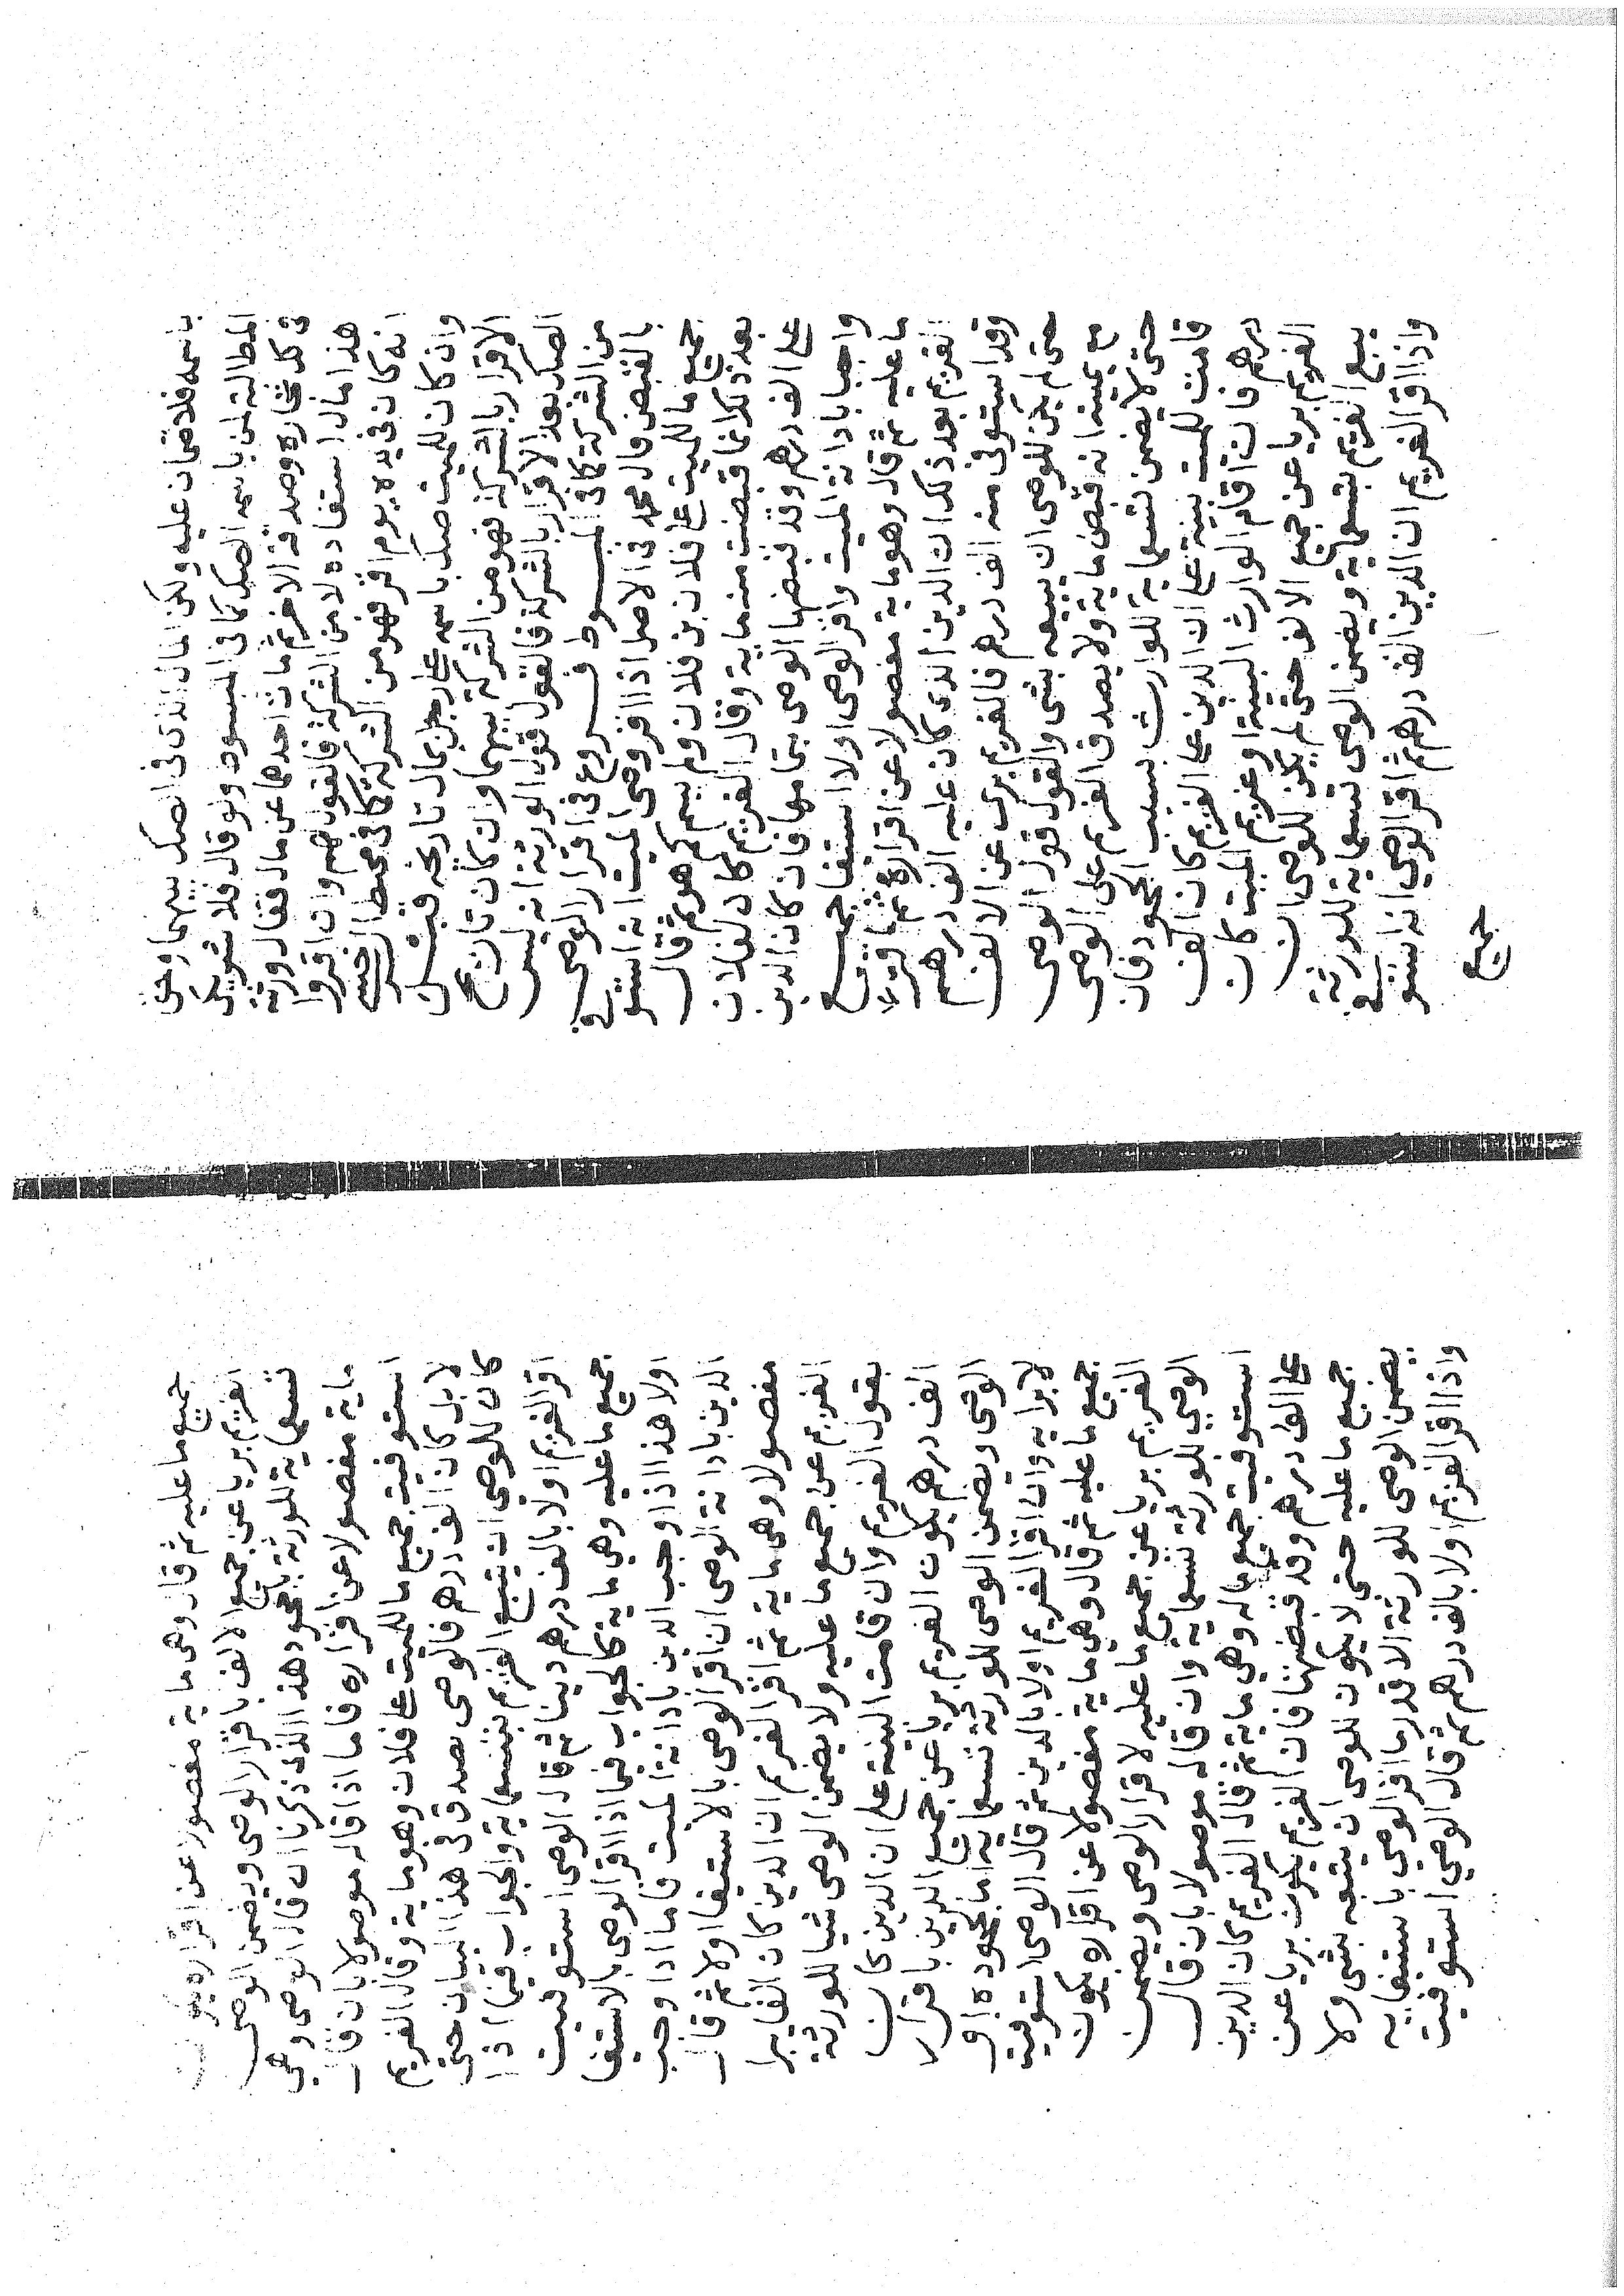 باسمه فلا ضمان عليه ولكن المال الذى فى الصك بينهما وحق
المطالبة لمن باسمه الصك كما فى المبسوط ولو قال فلان شريكى
فى كل تجارة وصدقه الاخر ثم مات احدهما عن مال فقال ورثته
هذا مال استفاده لا من الشركة فالقول لهم وان اقروا
انه كان فى يده يوم اقر فهو من الشركة كما فى محيط السرخسى
وان كان للميت صك باسمه على رجل بمال تاريخه قبل
الاقرار بالشركة فهو من الشركة بينهما وان كان تاريخ
الصك بعد الاقرار بالشركة فالقول قول الورثة انه ليس
من الشركة كما فى المبسوط فروع فى اقرار الوصى
بالقبض قال محمد فى الاصل اذا اقر وصى الميت انه استوفى
جميع ما للميت على فلان بن فلان ولم يسم كم هو ثم قال
بعد ذلك انما قبضت منه ماية وقال الغريم كان لفلان
على الف درهم وقد قبضها الوصى بتمامها فان كان الدين
واجبا بادانة الميت واقر الوصى اولا استيفا جميع
ما عليه ثم قال وهو ماية مفصولا عن اقراره ثم اقر
الغريم بعد ذلك ان الدين الذى كان عليه الف درهم
وقد استوفى منه الف درهم فالغريم برى عن الالف
حتى لم يكن للوصى ان يتبعه بشى والقول قول الوصى
مع يمينه انه قبض ماية ولا يصدق الغريم على الوصى
حتى لا يضمن تسعماية للوارث بسبب الجحود فان
قامت للميت بينة على ان الدين على الغريم كان الف
درهم فان اقام الوارث البينة او غريم الميت كان
الغريم بريا عن جميع الالف حتى لم يكن للوصى ان
يتبع الغريم بتسعماية ويضمن الوصى تسعماية للورثة
واذا اقر الغريم ان الدين الف درهم ثم اقر الوصى انه استوفى
جميع
جميع ما عليه ثم قال وهى ماية مفصولا عن اقراره يكون
الغريم بريا عن جميع الالف باقرار الوصى ويضمن الوصى
تسعماية للورثة بجحود هذا الذى ذكرنا ان قال الوصى وهى
ماية مفصولا عن اقراره فاما اذا قاله موصولا بان قال
استوفيت جميع ما للميت على فلان وهو ماية وقال الغريم
لا بل كان الف درهم فالوصى يصدق فى هذا البيان حتى
كان للوصى ان يتبع الغريم بتسعماية والجواب فيما اذا
اقر الغريم اولا بالف درهم دينا ثم قال الوصى استوفيت
جميع ما عليه وهى ماية كالجواب فيما اذا اقر الوصى بالاستيفا
اولا هذا اذا وجب الدين بادانة الميت فاما اذا وجب
الدين بادانة الوصى ان اقر الوصى بالاستيفا اولا ثم قال
مفصولا وهى ماية ثم اقر الغريم ان الدين كان الفا يبرا
الغريم عن جميع ما عليه ولا يضمن الوصى شيا للورثة
بقول الغريم وان قامت البينة على ان الدين كان
الف درهم يكون الغريم بريا عن جميع الدين باقرار
الوصى ويضمن الوصى للورثة تسعماية اما بجحوده او
لابرايه وان اقر الغريم اولا بالدين ثم قال الوصى استوفيت
جميع ما عليه ثم قال وهى ماية مفصولا عن اقراره يكون
الغريم بريا عن جميع ما عليه لاقرار الوصى ويضمن
الوصى للورثة تسعماية وان قاله موصولا بان قال
استوفيت جميع ماله وهى ماية ثم قال الغريم كان الدين
على الف درهم وقد قبضتها فان الغريم يكون بريا عن
جميع ما عليه حتى لا يكون للوصى ان يتبعه بشى ولا
يضمن الوصى للورثة الا قدر ما اقر الوصى باستيفايه
واذا اقر الغريم اولا بالف درهم ثم قال الوصى استوفيت